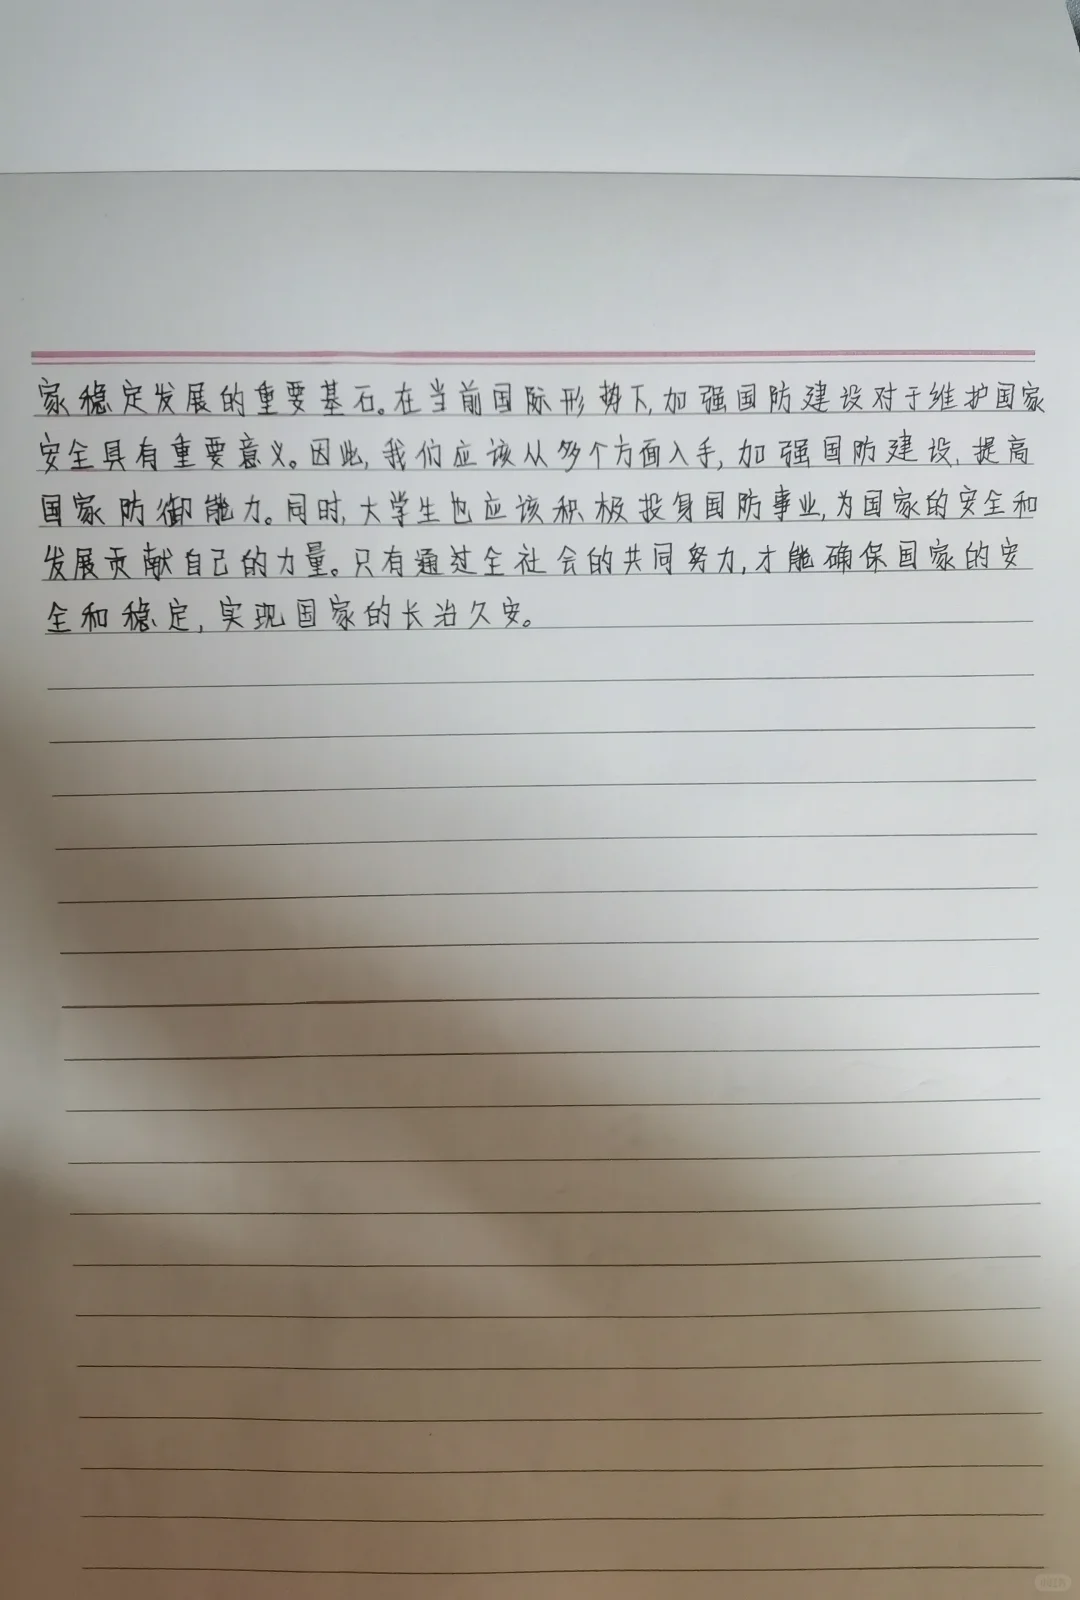 家稳定发展的重要基石。在当前国际形势下,加强国防建设对于维护国家
安全具有重要意义。因此,我们应该从多个方面入手,加强国防建设,提高
国家防御能力。同时,大学生也应该积极投身国防事业,为国家的安全和
发展贡献自己的力量。只有通过全社会的共同努力,才能确保国家的安
全和稳定,实现国家的长治久安。